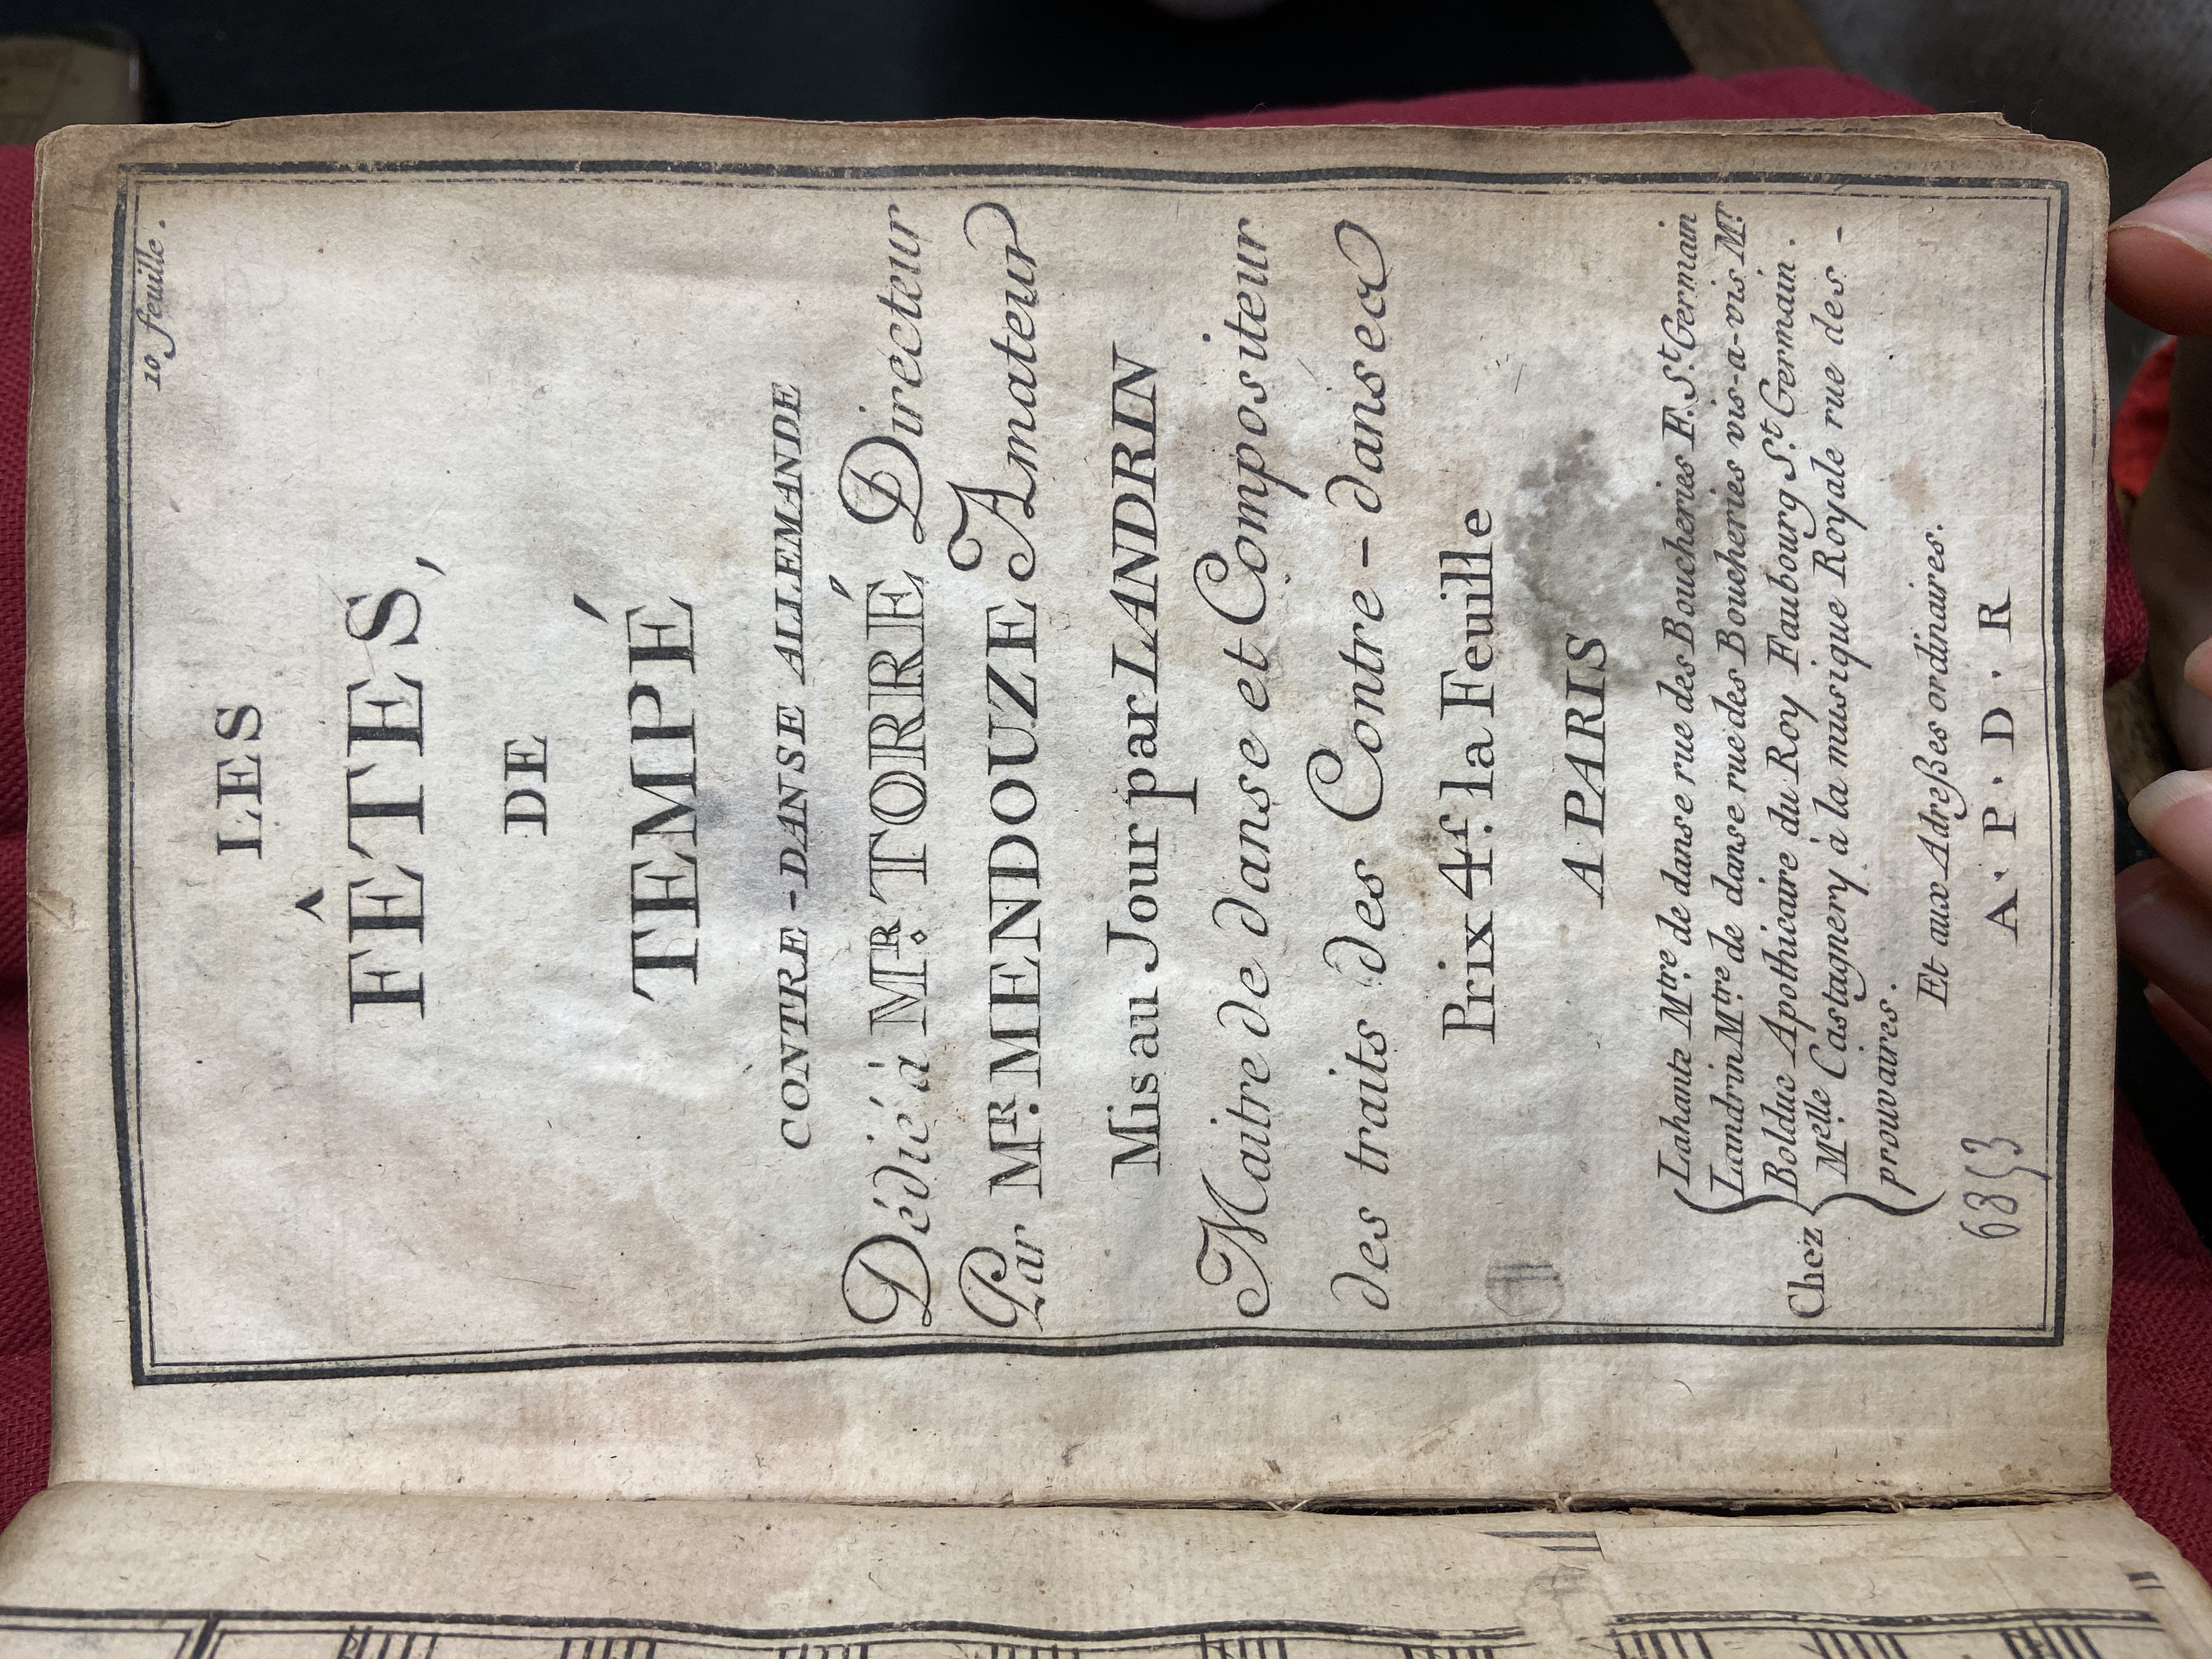 10 feuille.
LES
FÊTES,
DE
TEMPÉ
CONTRE-DANSE ALLEMANDE
Dédié á MR. TORRÉ Directeur
Par MR. MENDOUZE Amateur
Mis au Jour par LANDRIN
Maitre de danse et Compositeur
des traits des Contre-danses
Prix 4f. la Feuille
A PARIS
Chez
Lahante Mtre. de danse rue des Boucheries F. St. Germain
Landrin Mtre. de danse rue des Boucheries vis-a-vis Mr.
Bolduc Apothicaire du Roy Faubourg St. Germain.
Melle. Castagnery à la musique Royale rue des-
prouvaires.
Et aux Adreßes ordinaires.
A. P. D. R
6853